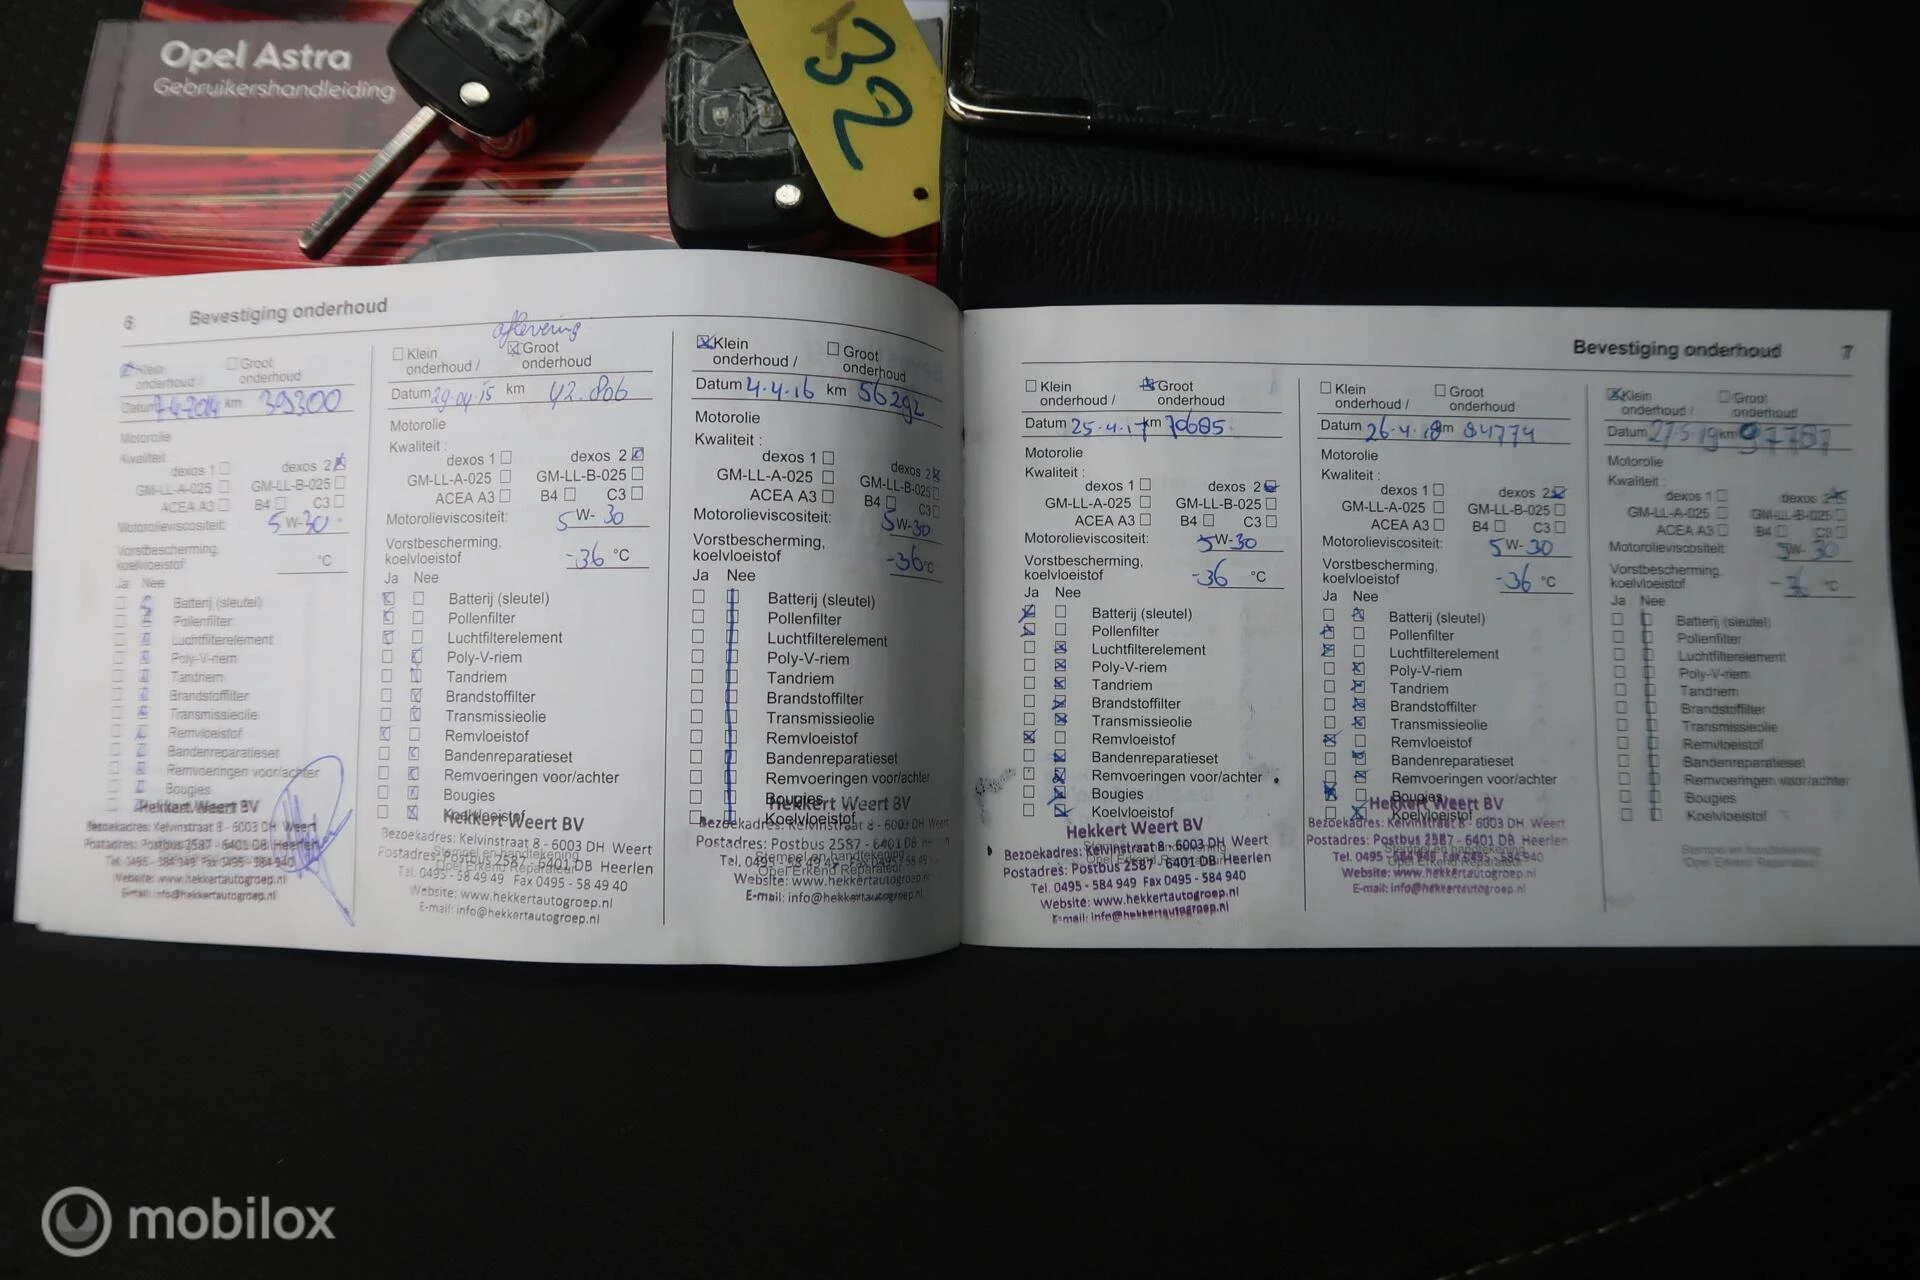 Opel Astra
Gebruikershandleiding
32
6 Bevestiging onderhoud
Klein onderhoud / Groot onderhoud
Datum 7-4-2014 km 39300
Motorolie
Kwaliteit :
dexos 1 dexos 2
GM-LL-A-025 GM-LL-B-025
ACEA A3 B4 C3
Motorolieviscositeit: 5 W-30
Vorstbescherming,
koelvloeistof °C
Ja Nee
Batterij (sleutel)
Pollenfilter
Luchtfilterelement
Poly-V-riem
Tandriem
Brandstoffilter
Transmissieolie
Remvloeistof
Bandenreparatieset
Remvoeringen voor/achter
Bougies
Hekkert Weert BV
Bezoekadres: Kelvinstraat 8 - 6003 DH Weert
Postadres: Postbus 2587 - 6401 DB Heerlen
Tel. 0495 - 584 949 Fax 0495 - 584 940
Website: www.hekkertautogroep.nl
E-mail: info@hekkertautogroep.nl
aflevering
Klein onderhoud / Groot onderhoud
Datum 29.04.15 km 42.806
Motorolie
Kwaliteit :
dexos 1 dexos 2
GM-LL-A-025 GM-LL-B-025
ACEA A3 B4 C3
Motorolieviscositeit: 5 W- 30
Vorstbescherming,
koelvloeistof -36 °C
Ja Nee
Batterij (sleutel)
Pollenfilter
Luchtfilterelement
Poly-V-riem
Tandriem
Brandstoffilter
Transmissieolie
Remvloeistof
Bandenreparatieset
Remvoeringen voor/achter
Bougies
Koelvloeistof
Hekkert Weert BV
Bezoekadres: Kelvinstraat 8 - 6003 DH Weert
Stempel en handtekening
Postadres: Postbus 2587 - 6401 DB Heerlen
Opel Erkend Reparateur
Tel. 0495 - 58 49 49 Fax 0495 - 58 49 40
Website: www.hekkertautogroep.nl
E-mail: info@hekkertautogroep.nl
Klein onderhoud / Groot onderhoud
Datum 4.4.16 km 56292
Motorolie
Kwaliteit :
dexos 1 dexos 2
GM-LL-A-025 GM-LL-B-025
ACEA A3 B4 C3
Motorolieviscositeit: 5 W-30
Vorstbescherming,
koelvloeistof -36 °C
Ja Nee
Batterij (sleutel)
Pollenfilter
Luchtfilterelement
Poly-V-riem
Tandriem
Brandstoffilter
Transmissieolie
Remvloeistof
Bandenreparatieset
Remvoeringen voor/achter
Bougies
Hekkert Weert BV
Koelvloeistof
Bezoekadres: Kelvinstraat 8 - 6003 DH Weert
Postadres: Postbus 2587 - 6401 DB
Stempel en handtekening
Tel. 0495 - 58 49 49
Opel Erkend Reparateur
Website: www.hekkertautogroep.nl
E-mail: info@hekkertautogroep.nl
Bevestiging onderhoud 7
Klein onderhoud / Groot onderhoud
Datum 25.4.17 km 70685
Motorolie
Kwaliteit :
dexos 1 dexos 2
GM-LL-A-025 GM-LL-B-025
ACEA A3 B4 C3
Motorolieviscositeit: 5 W-30
Vorstbescherming,
koelvloeistof -36 °C
Ja Nee
Batterij (sleutel)
Pollenfilter
Luchtfilterelement
Poly-V-riem
Tandriem
Brandstoffilter
Transmissieolie
Remvloeistof
Bandenreparatieset
Remvoeringen voor/achter
Bougies
Koelvloeistof
Hekkert Weert BV
Bezoekadres: Kelvinstraat 8 - 6003 DH Weert
Stempel en handtekening
Postadres: Postbus 2587 - 6401 DB Heerlen
Tel. 0495 - 584 949 Fax 0495 - 584 940
Website: www.hekkertautogroep.nl
E-mail: info@hekkertautogroep.nl
Klein onderhoud / Groot onderhoud
Datum 26.4.18 km 84774
Motorolie
Kwaliteit :
dexos 1 dexos 2
GM-LL-A-025 GM-LL-B-025
ACEA A3 B4 C3
Motorolieviscositeit: 5 W-30
Vorstbescherming,
koelvloeistof -36 °C
Ja Nee
Batterij (sleutel)
Pollenfilter
Luchtfilterelement
Poly-V-riem
Tandriem
Brandstoffilter
Transmissieolie
Remvloeistof
Bandenreparatieset
Remvoeringen voor/achter
Bougies
Hekkert Weert BV
Koelvloeistof
Bezoekadres: Kelvinstraat 8 - 6003 DH Weert
Postadres: Postbus 2587 - 6401 DB Heerlen
Stempel en handtekening
Tel. 0495 - 584 949 Fax 0495 - 584 940
Opel Erkend Reparateur
Website: www.hekkertautogroep.nl
E-mail: info@hekkertautogroep.nl
Klein onderhoud / Groot onderhoud
Datum 27.5.19 km 97781
Motorolie
Kwaliteit :
dexos 1 dexos 2
GM-LL-A-025 GM-LL-B-025
ACEA A3 B4 C3
Motorolieviscositeit: 5W- 30
Vorstbescherming,
koelvloeistof -36 °C
Ja Nee
Batterij (sleutel)
Pollenfilter
Luchtfilterelement
Poly-V-riem
Tandriem
Brandstoffilter
Transmissieolie
Remvloeistof
Bandenreparatieset
Remvoeringen voor/achter
Bougies
Koelvloeistof
Stempel en handtekening
Opel Erkend Reparateur
mobilox